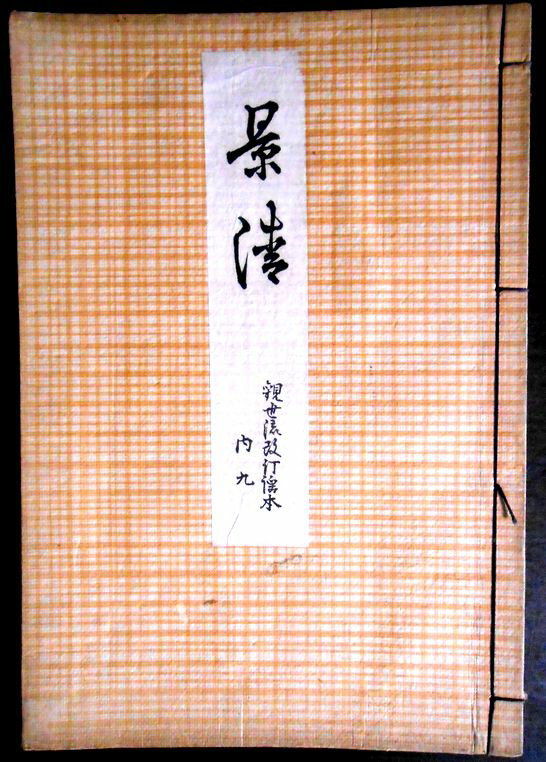 景清
觀世流改訂謡本
内九